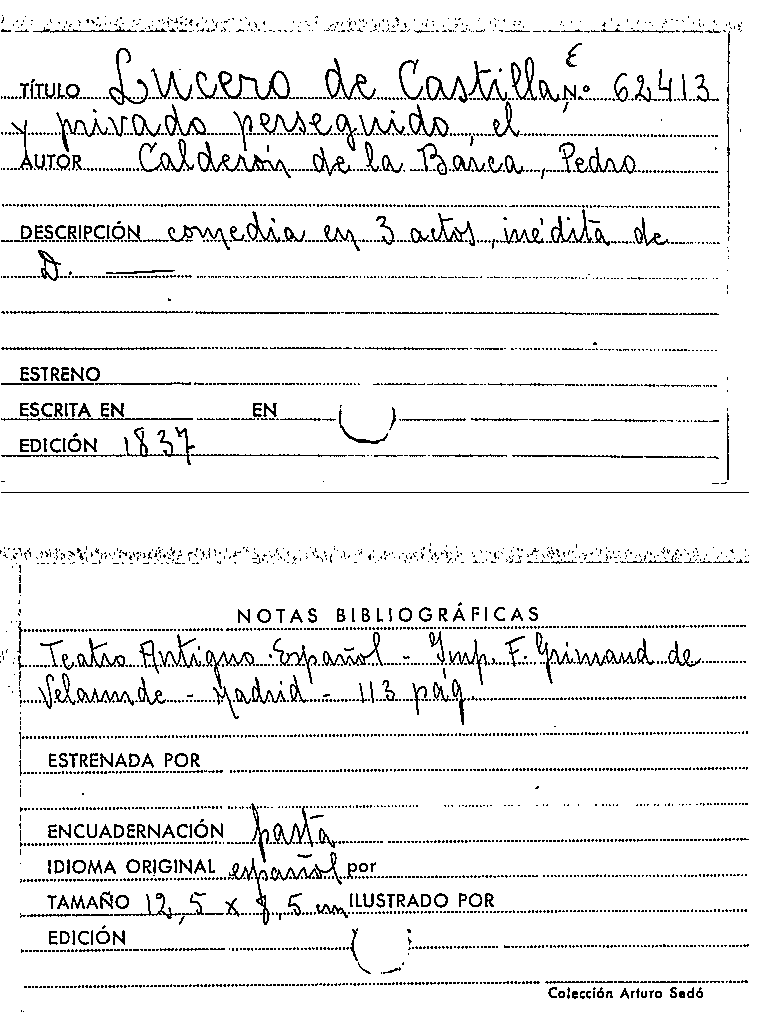 TÍTULO Lucero de Castilla, E N.º 62413
y privado perseguido, el
AUTOR Calderón de la Barca, Pedro
DESCRIPCIÓN comedia en 3 actos, inédita de
D. ———
ESTRENO
ESCRITA EN EN
EDICIÓN 1837
NOTAS BIBLIOGRÁFICAS
Teatro Antiguo Español - Imp. F. Grimaud de
Velaunde - Madrid - 113 pág.
ESTRENADA POR
ENCUADERNACIÓN pasta
IDIOMA ORIGINAL español por
TAMAÑO 12,5 x 8,5 cm ILUSTRADO POR
EDICIÓN
Colección Arturo Sedó